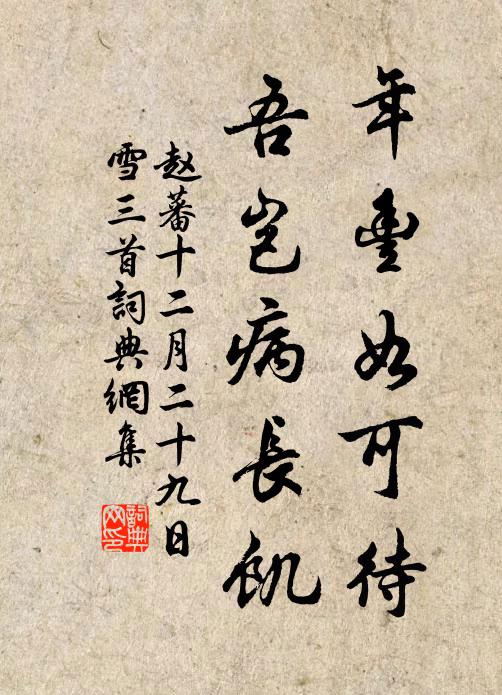 年豐如可待
吾豈病長飢
趙蕃十二月二十九日
雪三首詞典網集
詞典網印